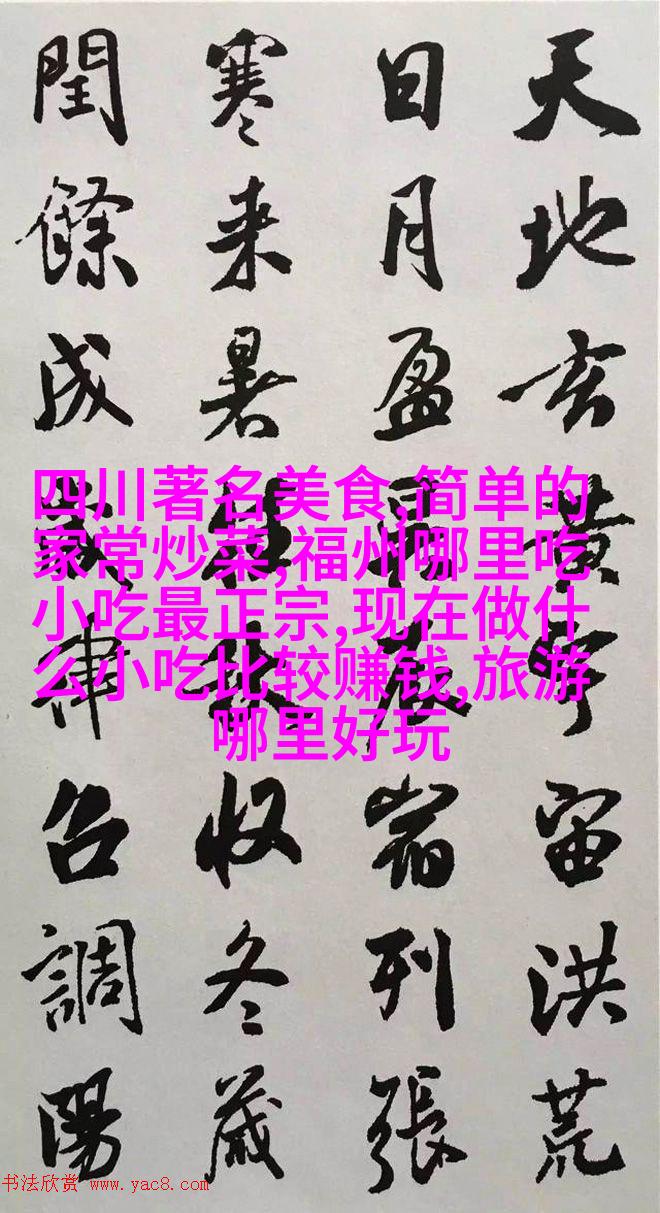 天地玄黄宇宙洪荒
日月盈昃辰宿列張
寒来暑往秋收冬藏
閏餘成歲律召調陽
四川著名美食,简单的
家常炒菜,福州哪里吃
小吃最正宗,现在做什
么小吃比较赚钱,旅游
哪里好玩
书法欣赏 www.yac8.com